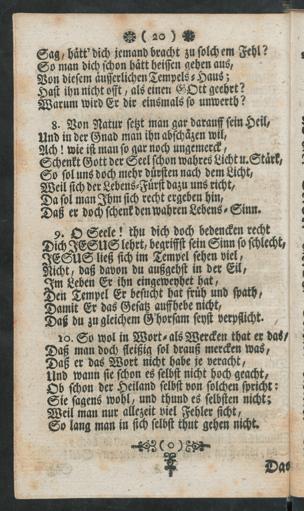 ( 20 )
Sag, hätt' dich jemand bracht zu solchem Fehl?
So man dich schon hätt heissen gehen aus,
Von diesem äusserlichen Tempels-Haus;
Hast ihn nicht offt, als einen GOtt geehrt?
Warum wird Er dir einsmals so unwerth?
8. Von Natur setzt man gar darauff sein Heil,
Und in der Gnad man ihn abschäzen wil,
Ach! wie ist man so gar noch ungemerck,
Schenkt Gott der Seel schon wahres Licht u. Stärk,
So sol uns doch mehr dürsten nach dem Licht,
Weil sich der Lebens-Fürst dazu uns richt,
Da sol man Ihm sich recht ergeben hin,
Daß er doch schenk den wahren Lebens-Sinn.
9. O Seele! thu dich doch bedencken recht
Dich JESUS lehrt, begriffst sein Sinn so schlecht,
JESUS ließ sich im Tempel sehen viel,
Nicht, daß davon du außgehst in der Eil,
Im Leben Er ihn eingeweyhet hat,
Den Tempel Er besucht hat früh und spath,
Damit Er das Gesätz auffhebe nicht,
Daß du zu gleichem Ghorsam seyst verpflicht.
10. So wol in Wort- als Wercken that er das,
Daß man doch fleißig sol drauß mercken was,
Daß er das Wort nicht habe je veracht,
Und wann sie schon es selbst nicht hoch geacht,
Ob schon der Heiland selbst von solchen spricht:
Sie sagens wohl, und thund es selbsten nicht;
Weil man nur allezeit viel Fehler sicht,
So lang man in sich selbst thut gehen nicht.
( o )